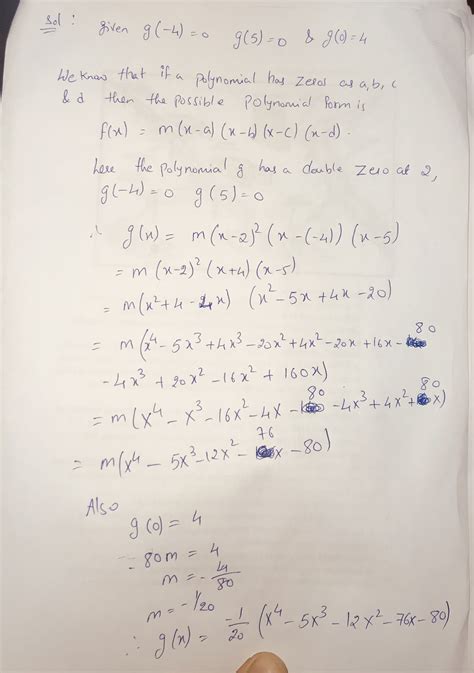 Sol :
given g(-4)=0 g(5)=0 & g(0)=4
We know that if a polynomial has zeros as a, b, c
& d then the possible polynomial form is
f(x) = m(x-a)(x-b)(x-c)(x-d).
here the polynomial g has a double zero at 2,
g(-4)=0 g(5)=0
∴ g(x) = m(x-2)²(x-(-4))(x-5)
= m(x-2)²(x+4)(x-5)
= m(x²+4-4x) (x²-5x+4x-20)
= m(x⁴-5x³+4x³-20x²+4x²-20x+16x-80
-4x³+20x²-16x²+160x)
= m(x⁴-x³-16x²-4x-80-4x³+4x²+80x)
= m(x⁴-5x³-12x²-76x-80)
Also
g(0)=4
-80m=4
m=-4/80
m=-1/20
∴ g(x) = -1/20 (x⁴-5x³-12x²-76x-80)